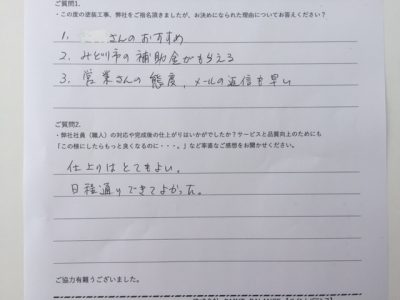 ご質問1.
・この度の塗装工事、弊社をご指名頂きましたが、お決めになられた理由についてお答えください？
1. さんのおすすめ
2. みどり市の補助金がもらえる
3. 営業さんの態度、メールの返信も早い
ご質問2.
・弊社社員（職人）の対応や完成後の仕上がりはいかがでしたか？サービスと品質向上のためにも
「この様にしたらもっと良くなるのに・・・。」など率直なご感想をお聞かせください。
仕上りはとてもよい。
日程通りできてよかった。
ご協力有難うございました。